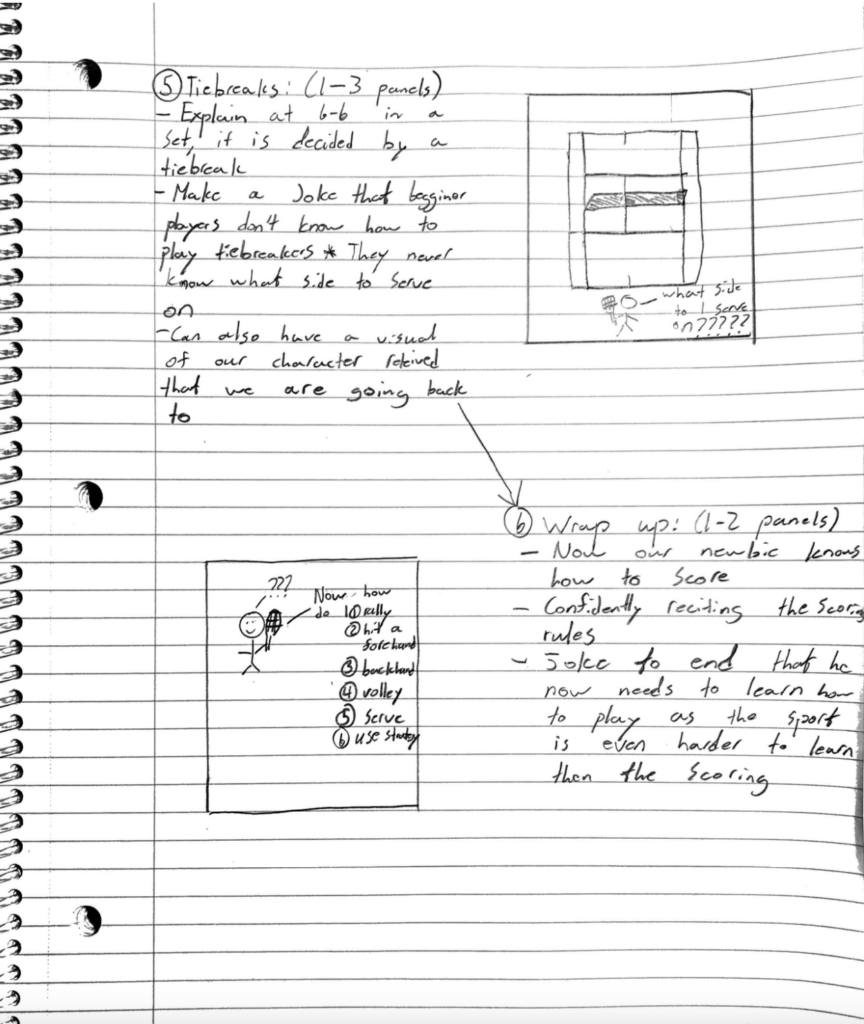 ⑤ Tiebreaks: (1-3 panels)
- Explain at 6-6 in a
set, it is decided by a
tiebreak
- Make a Joke that begginor
players don't know how to
play tiebreakers * They never
know what side to serve
on
- Can also have a visual
of our character
that we are going back
to
what side
to I serve
on?????
⑥ Wrap up: (1-2 panels)
- Now our newbie knows
how to score
- Confidently reciting the scoring
rules
- Joke to end that he
now needs to learn how
to play as the sport
is even harder to learn
then the scoring
???
Now how
do ① rally
② hit a
forehand
③ backhand
④ volley
⑤ serve
⑥ use